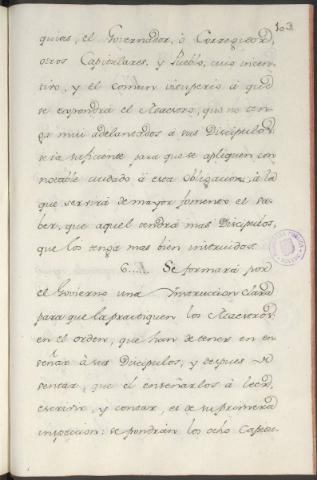 103
quias, el Governador, ô Corregidor,
otros Capitulares, y Pueblo, cuio incen-
tivo, y el comun vituperio â que
se expondrá el Maestro, que no ten-
ga mui adelantados â sus Discipulos
sera suficiente para que se apliquen con
notable cuidado â esta obligacion, â la
que servirá de mayor fomento el sa-
ber, que aquel tendrá mas Discipulos,
que los tenga mas bien instruidos.
6..... Se formará por
el Govierno una Instruccion clara
para que la practiquen los Maestros
en el orden, que han de tener en en-
señar â sus Discipulos, y despues de
sentar, que el enseñarlos â leer,
escrivir, y contar, es de su primera
inspeccion: se pondrán los ocho Capitu-